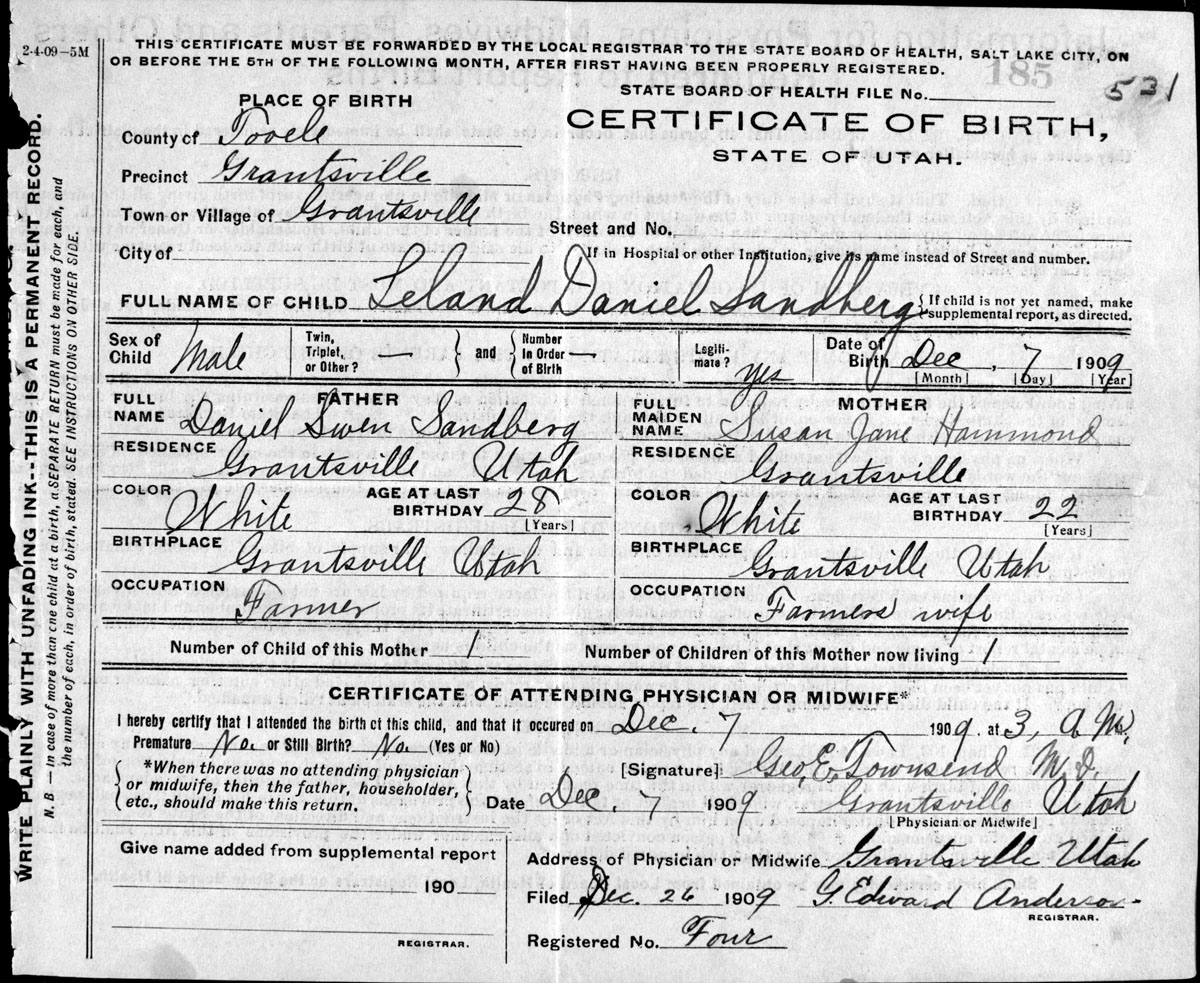 2-4-09-5M
THIS CERTIFICATE MUST BE FORWARDED BY THE LOCAL REGISTRAR TO THE STATE BOARD OF HEALTH, SALT LAKE CITY, ON
OR BEFORE THE 5TH OF THE FOLLOWING MONTH, AFTER FIRST HAVING BEEN PROPERLY REGISTERED.
185
STATE BOARD OF HEALTH FILE No. 531
PLACE OF BIRTH
CERTIFICATE OF BIRTH,
STATE OF UTAH.
County of Tooele
Precinct Grantsville
Town or Village of Grantsville
Street and No.
City of
If in Hospital or other Institution, give its name instead of Street and number.
FULL NAME OF CHILD Leland Daniel Sandberg { If child is not yet named, make
supplemental report, as directed.
Sex of Child Male
Twin, Triplet, or Other? — } and { Number In Order of Birth —
Legiti-mate? yes
Date of Birth Dec, 7 1909
[Month] [Day] [Year]
FATHER
FULL NAME Daniel Swen Sandberg
RESIDENCE Grantsville Utah
COLOR White AGE AT LAST BIRTHDAY 28 [Years]
BIRTHPLACE Grantsville Utah
OCCUPATION Farmer
MOTHER
FULL MAIDEN NAME Susan Jane Hammond
RESIDENCE Grantsville
COLOR White AGE AT LAST BIRTHDAY 22 [Years]
BIRTHPLACE Grantsville Utah
OCCUPATION Farmers wife
Number of Child of this Mother 1
Number of Children of this Mother now living 1
CERTIFICATE OF ATTENDING PHYSICIAN OR MIDWIFE*
I hereby certify that I attended the birth of this child, and that it occured on Dec. 7 1909. at 3, a M.
Premature No. or Still Birth? No. (Yes or No)
{ *When there was no attending physician
or midwife, then the father, householder,
etc., should make this return. }
[Signature] Geo. E. Townsend M.D.
Date Dec. 7 1909 Grantsville Utah
[Physician or Midwife]
Give name added from supplemental report
190
REGISTRAR.
Address of Physician or Midwife Grantsville Utah
Filed Dec. 26 1909 G. Edward Anderson
REGISTRAR.
Registered No. Four
WRITE PLAINLY WITH UNFADING INK--THIS IS A PERMANENT RECORD.
N. B — In case of more than one child at a birth, a SEPARATE RETURN must be made for each, and
the number of each, in order of birth, stated. SEE INSTRUCTIONS ON OTHER SIDE.